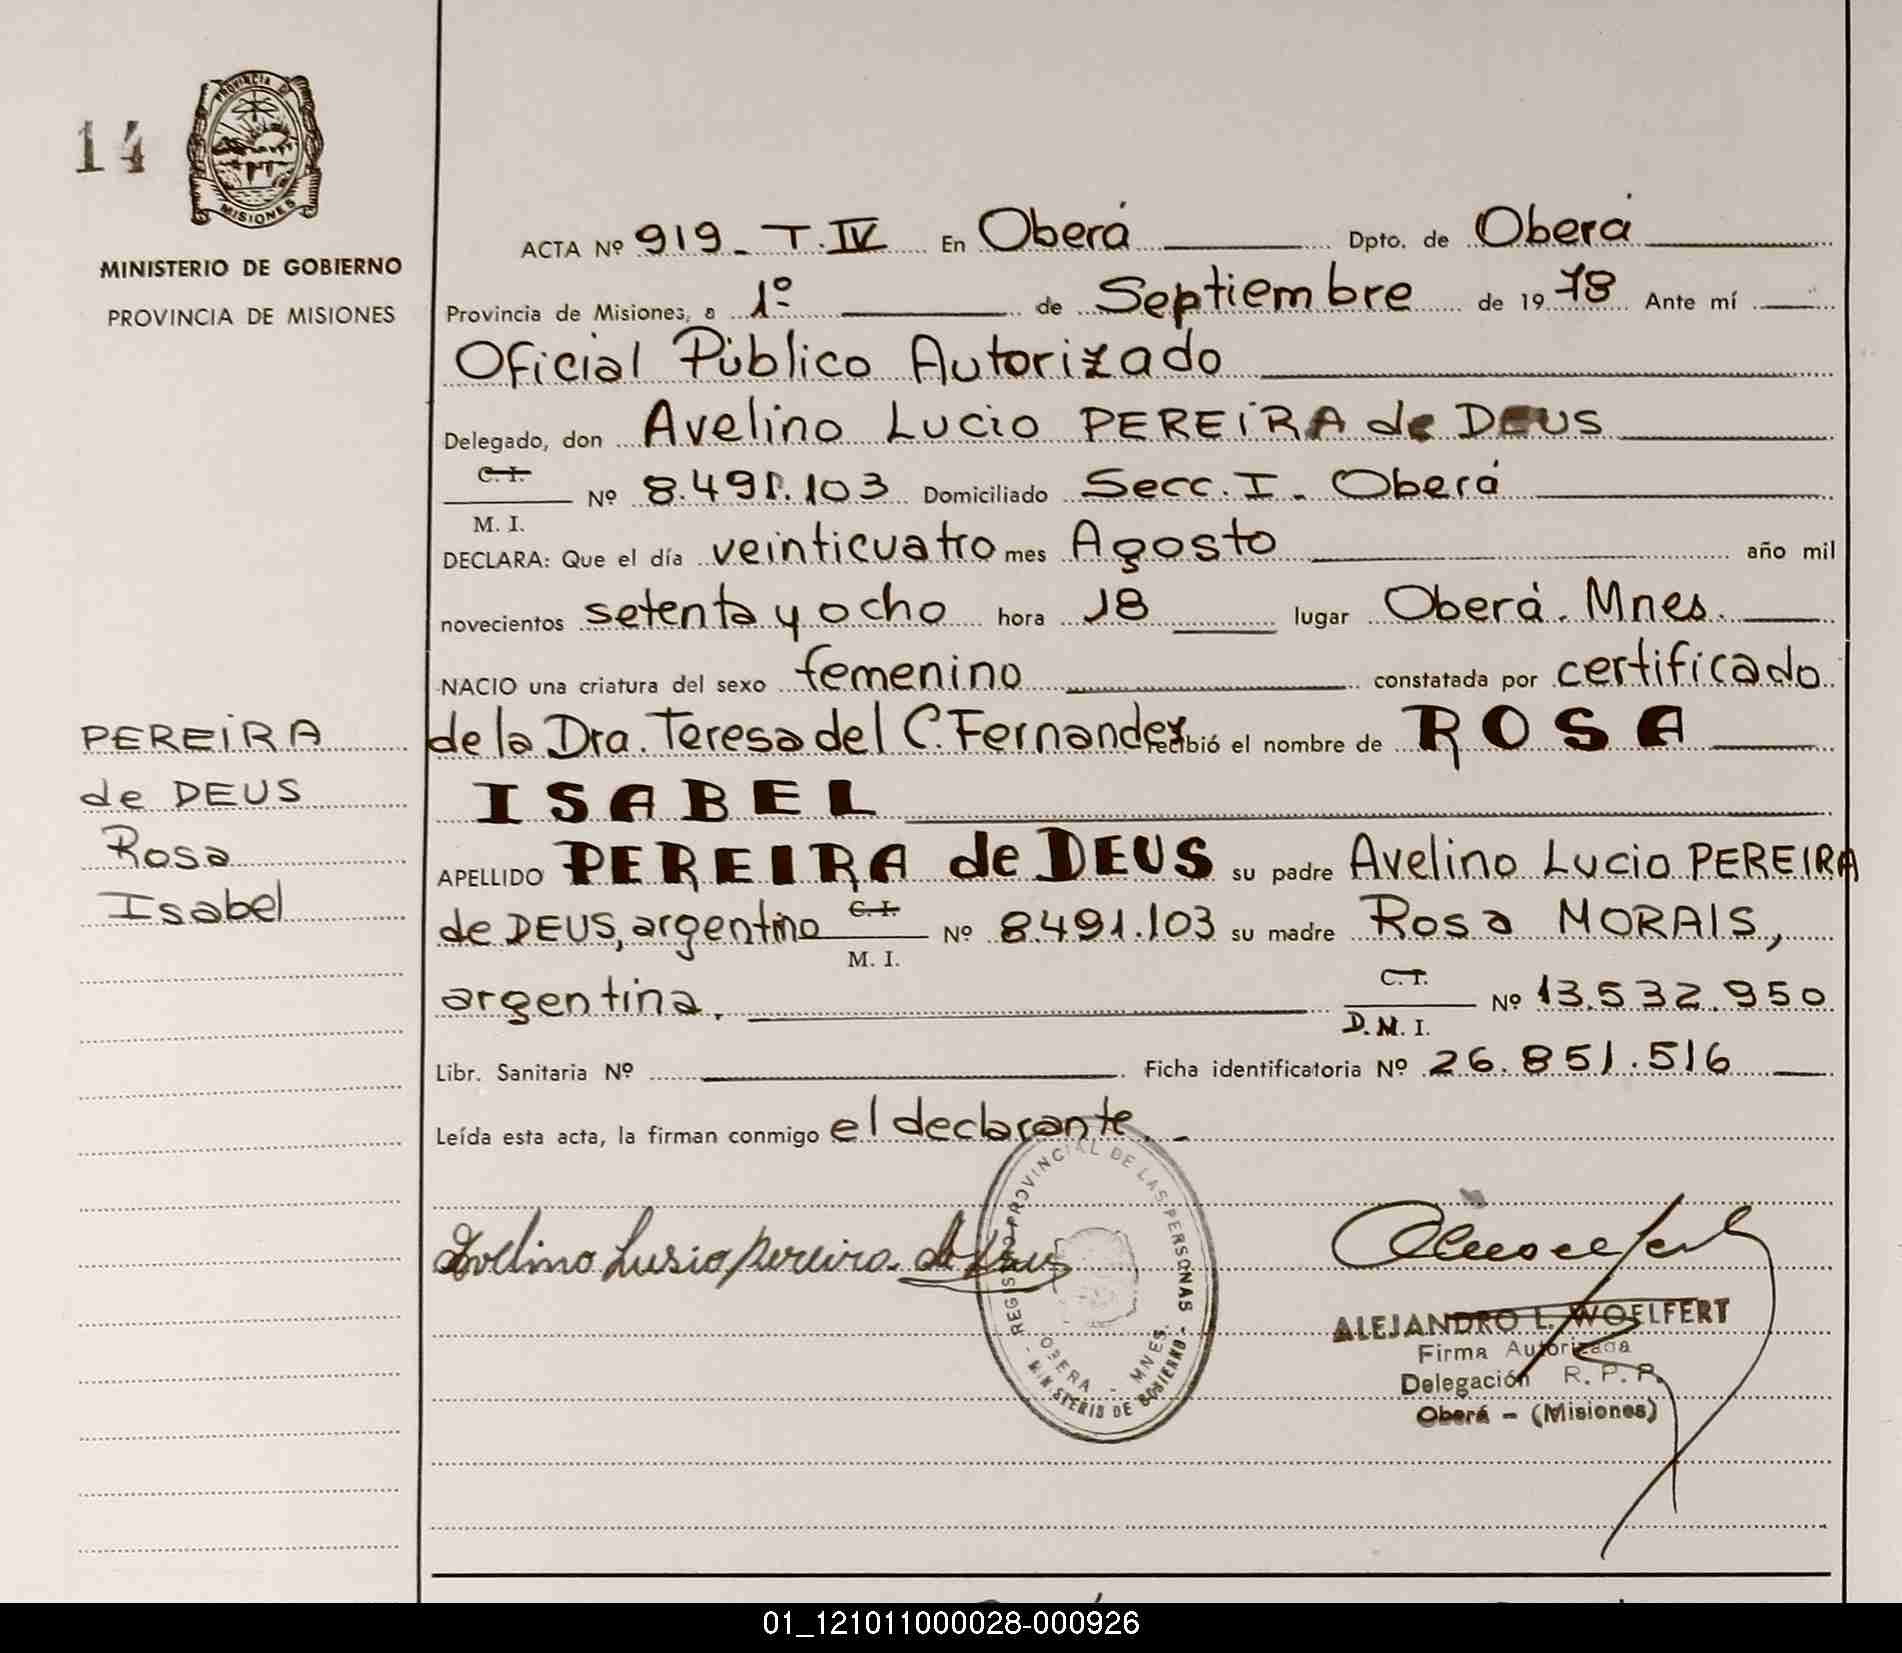 14
PROVINCIA DE
MISIONES
MINISTERIO DE GOBIERNO
PROVINCIA DE MISIONES
PEREIRA
de DEUS
Rosa
Isabel
ACTA Nº 919 - T. IV En Oberá Dpto. de Oberá
Provincia de Misiones, a 1º de Septiembre de 1978 Ante mí
Oficial Público Autorizado
Delegado, don Avelino Lucio PEREIRA de DEUS
C. I.
Nº 8.491.103 Domiciliado Secc. I - Oberá
M. I.
DECLARA: Que el día veinticuatro mes Agosto año mil
novecientos setenta y ocho hora 18 lugar Oberá. Mnes.
NACIO una criatura del sexo femenino constatada por certificado
de la Dra. Teresa del C. Fernandez recibió el nombre de ROSA
ISABEL
APELLIDO PEREIRA de DEUS su padre Avelino Lucio PEREIRA
de DEUS, argentino C. I. Nº 8.491.103 su madre Rosa MORAIS,
M. I.
argentina. C. I. Nº 13.532.950
D. M. I.
Libr. Sanitaria Nº Ficha identificatoria Nº 26.851.516
Leída esta acta, la firman conmigo el declarante. -
Avelino Lusio pereira de Deus
REGISTRO PROVINCIAL DE LAS PERSONAS
OBERA - MNES.
- MINISTERIO DE GOBIERNO -
ALEJANDRO L. WOELFERT
Firma Autorizada
Delegación R. P. P.
Oberá - (Misiones)
01_121011000028-000926